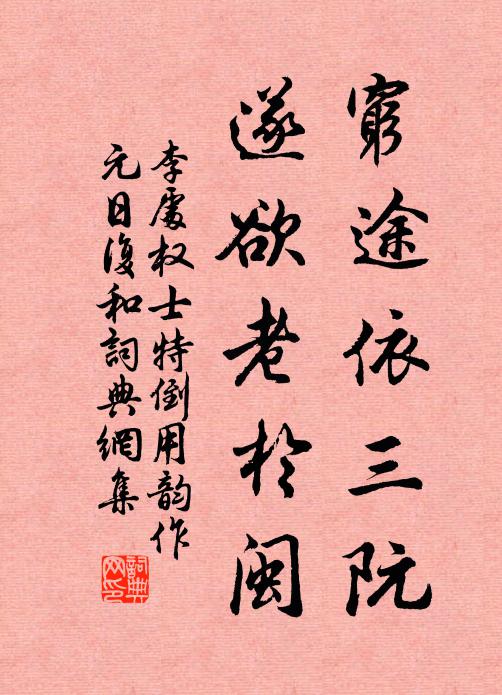 窮途依三阮
遂欲老於閩
李處权士特倒用韵作
元日復和詞典網集
詞典
网印